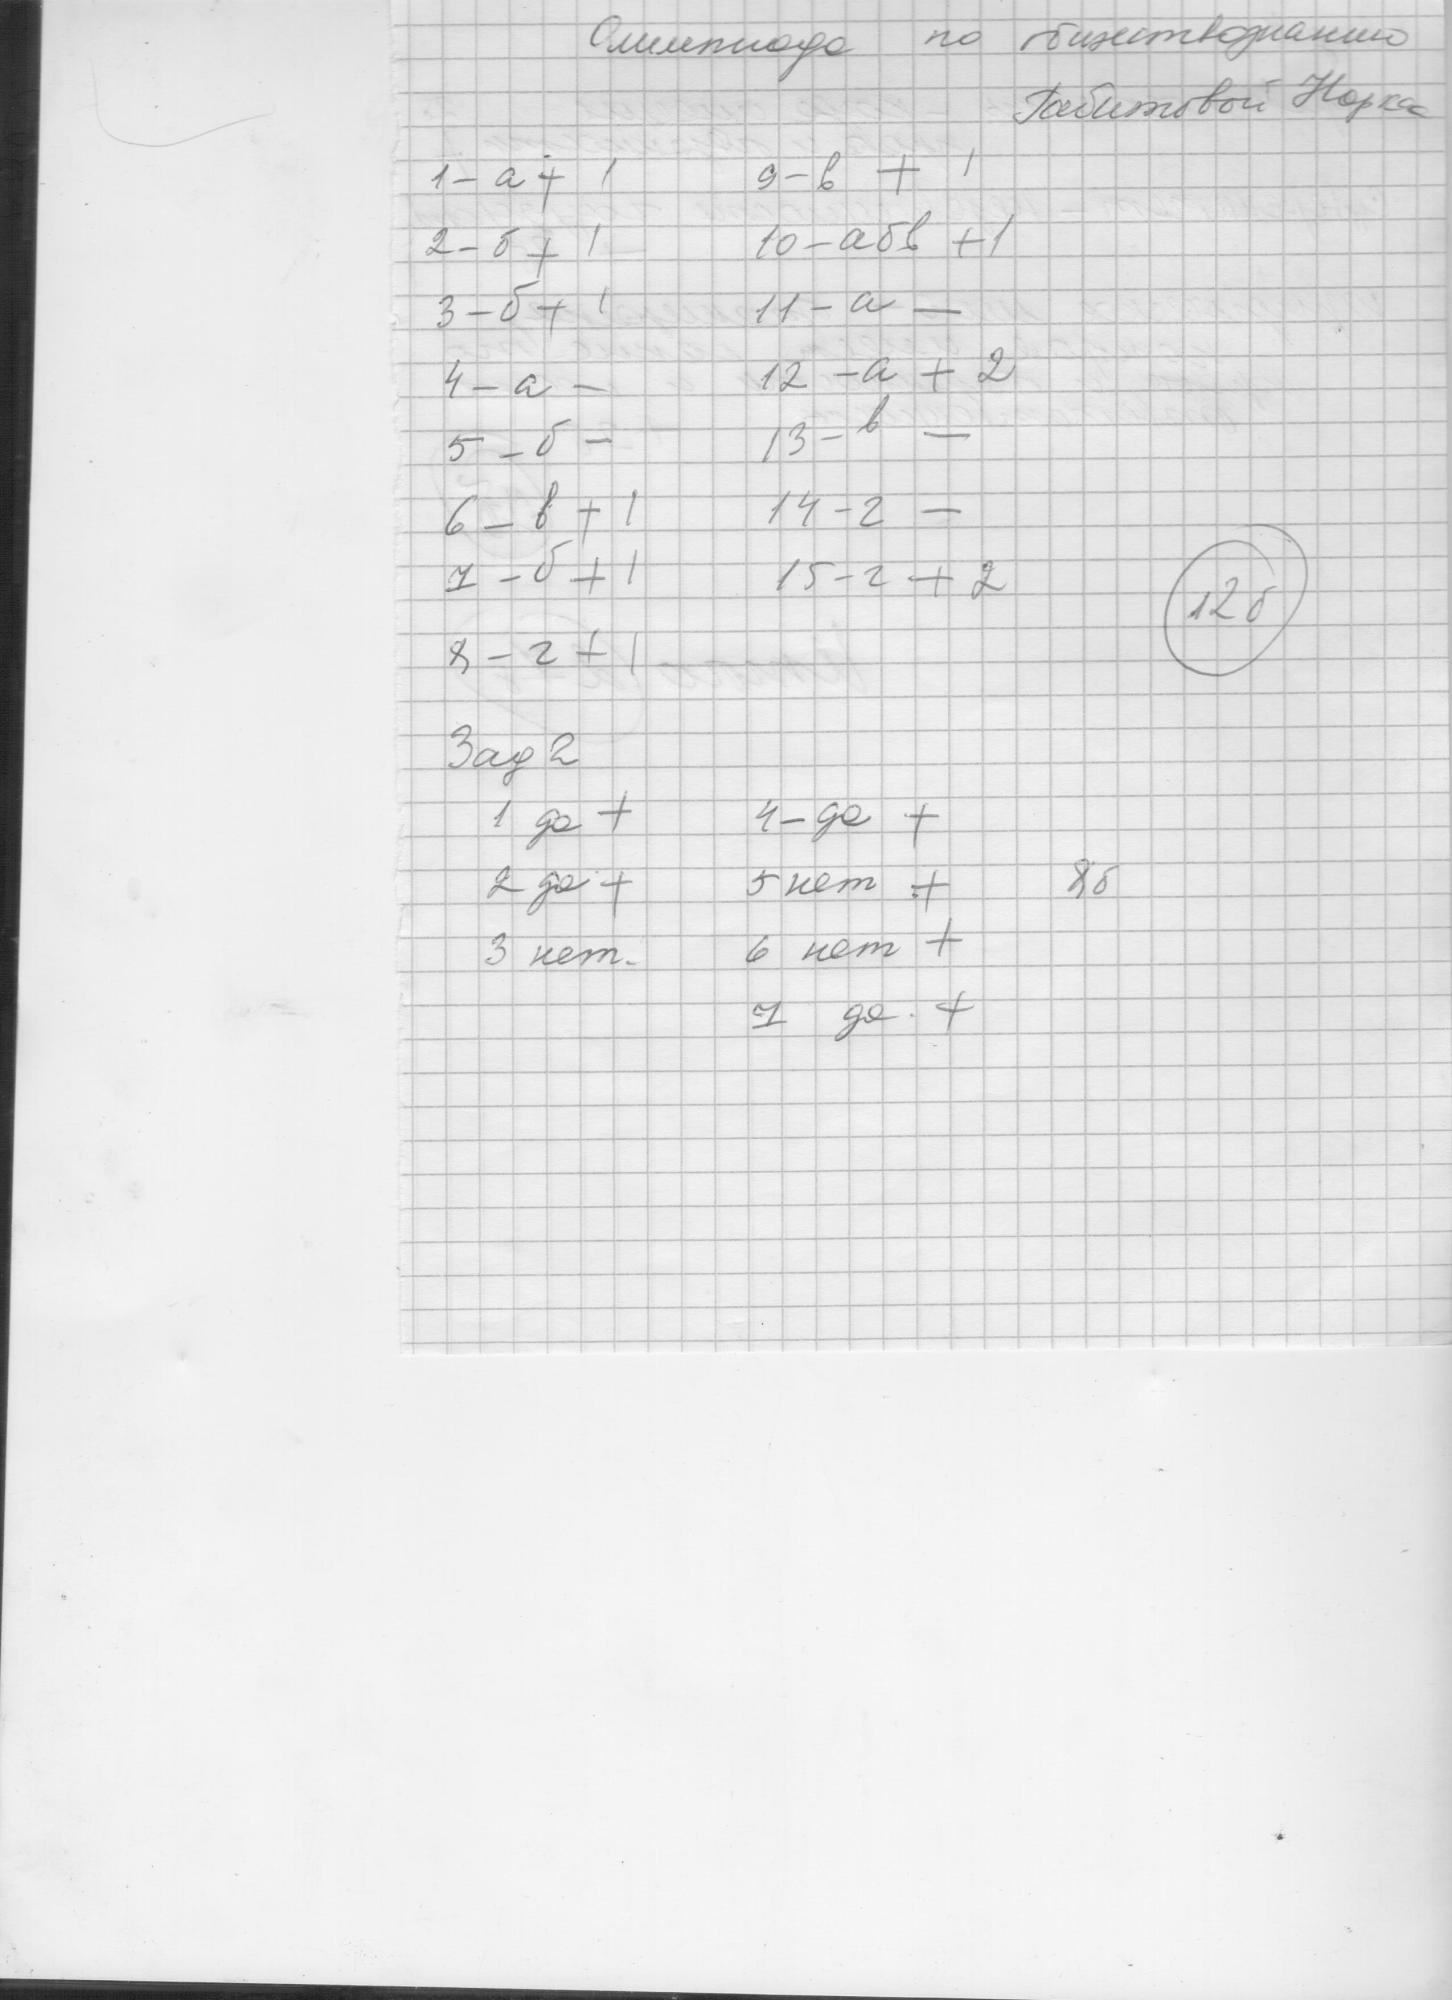 Олимпиада по обществознанию
Габитовой
1 – а + 1
2 – б + 1
3 – б + 1
4 – а –
5 – б –
6 – в + 1
7 – б + 1
8 – г + 1
9 – в + 1
10 – абв + 1
11 – а —
12 – а + 2
13 – в —
14 – г —
15 – г + 2
12 б
Зад 2
1 да +
2 да +
3 нет -
4 – да +
5 нет +
6 нет +
7 да. +
8б